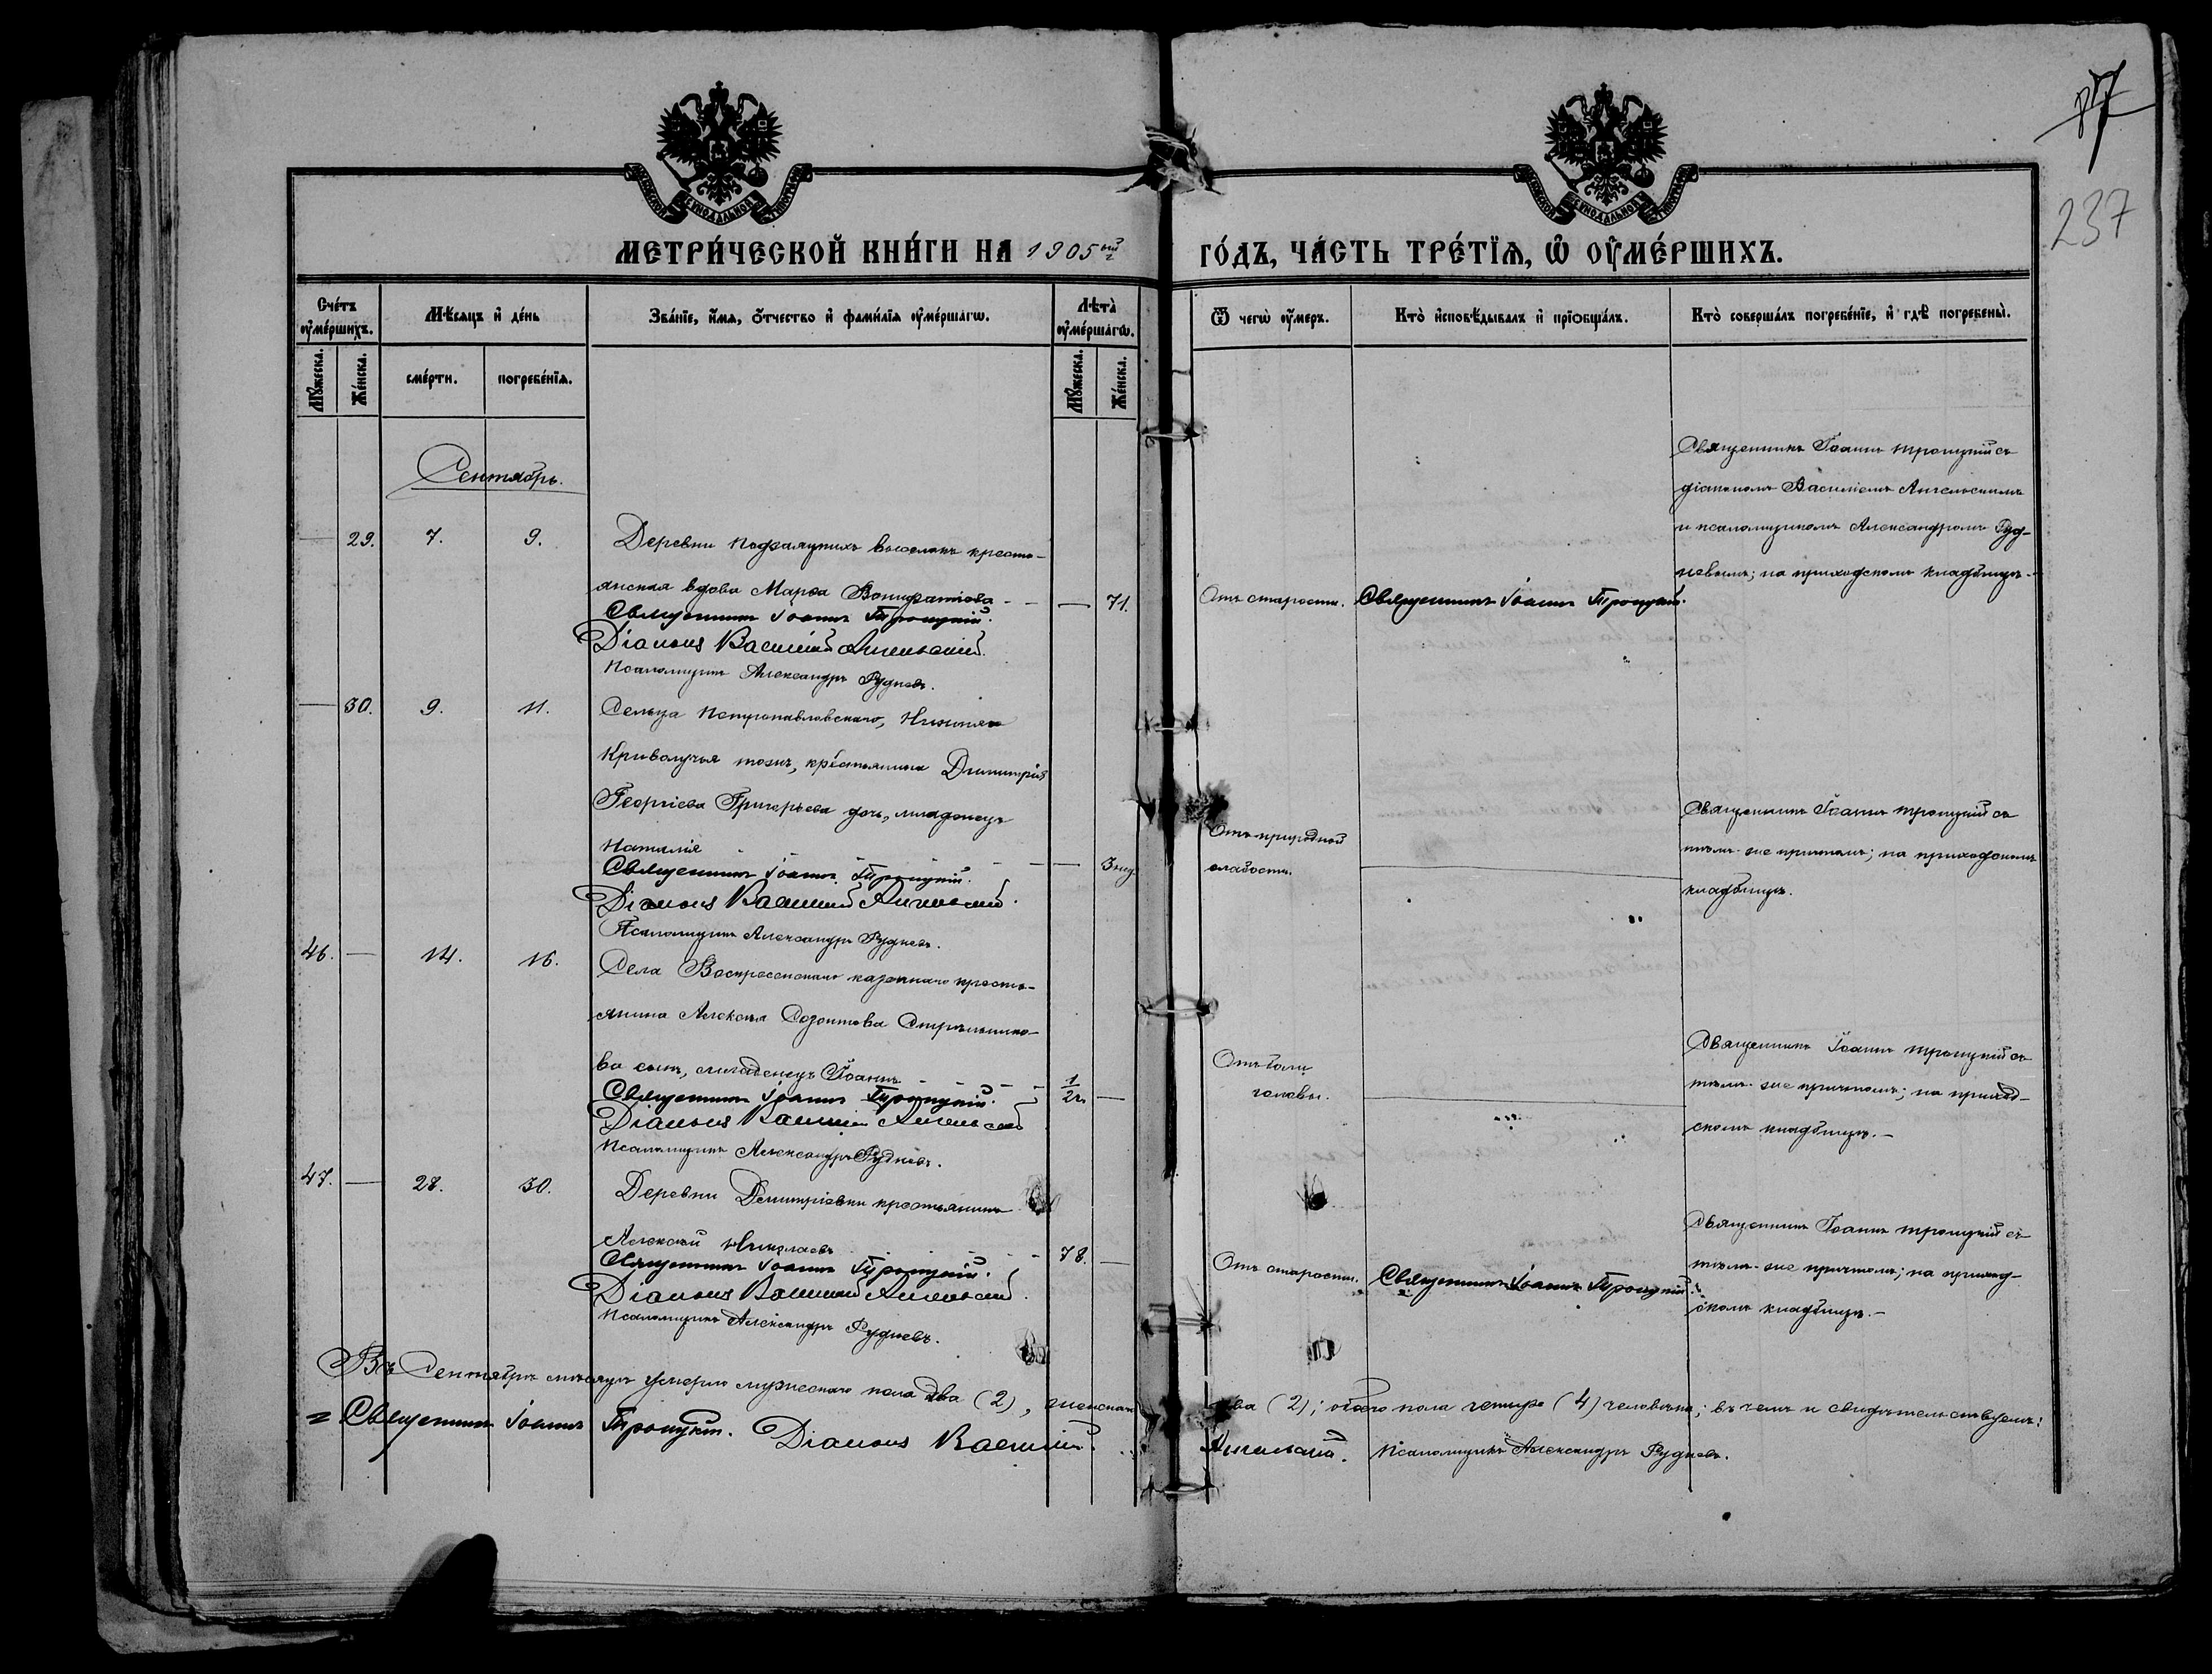 87
237
МЕТРИ́ЧЕСКОЙ КНИ́ГИ НА 1905ый ГО́ДЪ, ЧА́СТЬ ТРЕ́ТЇѦ, Ѡ ОУМЕ́РШИХЪ.
Сче́тъ оуме́ршихъ.
Мѣ́сяцъ и де́нь
Зва́нїе, и́мя, о́тчество и фами́лїя оуме́ршагѡ.
Лѣта̀ оуме́ршагѡ.
Ѿ чегѡ̀ оу́меръ.
Кто̀ исповѣ́дывалъ и прїобща́лъ.
Кто̀ соверша́лъ погребе́нїе, и гдѣ̀ погребены̀.
Мꙋ́жеска.
Же́нска.
сме́рти.
погребе́нїя.
Мꙋ́жеска.
Же́нска.
Сентябрь.
— 29. 7. 9.
Деревни выселокъ кресть-
янская вдова Марѳа Вонифатіева — — 71.
Священникъ Іоаннъ Троицкій.
Діаконъ Василій Ангельскій.
Псаломщикъ Александръ Рудневъ.
Отъ старости.
Священникъ Іоаннъ Троицкій.
Священникъ Іоаннъ Троицкій съ
діакономъ Василіемъ Ангельскимъ
и псаломщикомъ Александромъ Руд-
невымъ; на приходскомъ кладбищѣ.
— 30. 9. 11.
Сельца Петропавловскаго, Нижняго
Криволучья тожъ, крестьянина Димитрія
Георгіева Григорьева дочь, младенецъ
Наталія — — 3 нед.
Священникъ Іоаннъ Троицкій.
Діаконъ Василій Ангельскій.
Псаломщикъ Александръ Рудневъ.
Отъ природной
слабости.
Священникъ Іоаннъ Троицкій съ
тѣмъ-же причтомъ; на приходскомъ
кладбищѣ.
46. — 14. 16.
Села Воскресенскаго казеннаго кресть-
янина Алексѣя Созонтова Стрѣльнико-
ва сынъ, младенецъ Іоаннъ — 1/2 г. —
Священникъ Іоаннъ Троицкій.
Діаконъ Василій Ангельскій
Псаломщикъ Александръ Рудневъ.
Отъ боли
головы.
Священникъ Іоаннъ Троицкій съ
тѣмъ-же причтомъ; на приход-
скомъ кладбищѣ.—
47. — 28. 30.
Деревни Димитріевки крестьянинъ
Алексѣй Николаевъ — 78. —
Священникъ Іоаннъ Троицкій.
Діаконъ Василій Ангельскій.
Псаломщикъ Александръ Рудневъ.
Отъ старости.
Священникъ Іоаннъ Троицкій.
Священникъ Іоаннъ Троицкій съ
тѣмъ-же причтомъ; на приход-
скомъ кладбищѣ.—
Въ Сентябрѣ мѣсяцѣ умерло мужескаго пола два (2), женскаго два (2); обоего пола четыре (4) человѣка; въ чемъ и свидѣтельствуемъ:
Священникъ Іоаннъ Троицкій. Діаконъ Василій Ангельскій. Псаломщикъ Александръ Рудневъ.